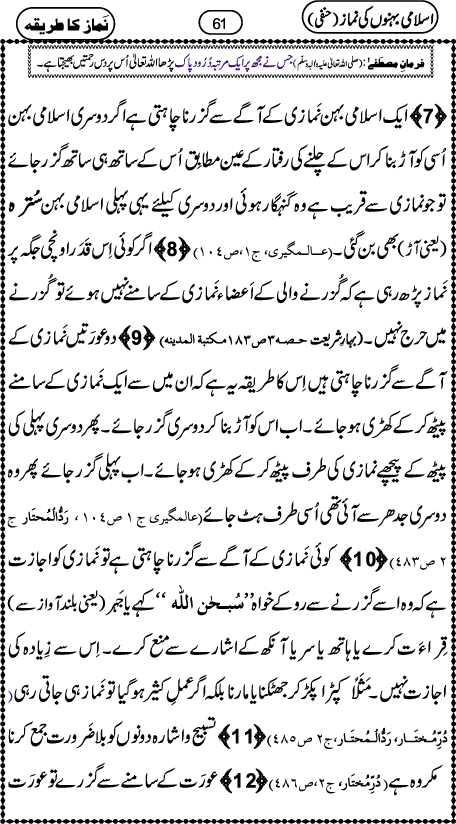 اسلامی بہنوں کی نماز (حنفی)
61
نَماز کا طریقہ
فرمانِ مصطفےٰ: (صلی اللہ تعالیٰ علیہ واٰلہٖ وسلّم) جس نے مجھ پر ایک مرتبہ دُرُود پاک پڑھا اللہ تعالیٰ اُس پر دس رحمتیں بھیجتا ہے۔
﴿7﴾ ایک اسلامی بہن نَمازی کے آگے سے گزرنا چاہتی ہے اگر دوسری اسلامی بہن
اُسی کو آڑ بنا کر اس کے چلنے کی رفتار کے عین مطابِق اُس کے ساتھ ہی ساتھ گزر جائے
تو جو نَمازی سے قریب ہے وہ گنہگار ہوئی اور دوسری کیلئے یہی پہلی اسلامی بہن سُترہ
(یعنی آڑ) بھی بن گئی۔ (عالمگیری، ج۱، ص۱۰۴) ﴿8﴾ اگر کوئی اِس قَدَر اونچی جگہ پر
نَماز پڑھ رہی ہے کہ گُزرنے والی کے اَعضاء نَمازی کے سامنے نہیں ہوئے تو گُزرنے
میں حَرج نہیں۔ (بہارِ شریعت حصہ ۳ ص ۱۸۳ مکتبۃ المدینہ) ﴿9﴾ دو عورَتیں نَمازی کے
آگے سے گزرنا چاہتی ہیں اِس کا طریقہ یہ ہے کہ ان میں سے ایک نَمازی کے سامنے
پیٹھ کر کے کھڑی ہو جائے۔ اب اس کو آڑ بنا کر دوسری گزر جائے۔ پھر دوسری پہلی کی
پیٹھ کے پیچھے نَمازی کی طرف پیٹھ کر کے کھڑی ہو جائے۔ اب پہلی گزر جائے پھر وہ
دوسری جدھر سے آئی تھی اُسی طرف ہٹ جائے (عالمگیری ج ۱ ص ۱۰۴، رَدُّالْمُحتَار ج
۲ ص ۴۸۳) ﴿10﴾ کوئی نَمازی کے آگے سے گزرنا چاہتی ہے تو نَمازی کو اجازت
ہے کہ وہ اسے گزرنے سے روکے خواہ ’’سُبحٰنَ اللہ‘‘ کہے یا جَہر (یعنی بلند آواز سے)
قِراءَت کرے یا ہاتھ یا سر یا آنکھ کے اشارے سے منع کرے۔ اِس سے زِیادہ کی
اجازت نہیں۔ مَثَلًا کپڑا پکڑ کر جھٹکنا یا مارنا بلکہ اگر عملِ کثیر ہو گیا تو نَماز ہی جاتی رہی (
دُرِّمُختَار، رَدُّالْمُحتَار، ج۲ ص ۴۸۵) ﴿11﴾ تسبیح و اشارہ دونوں کو بلا ضَرورت جمع کرنا
مکروہ ہے (دُرِّمُختَار، ج۲، ص۴۸۶) ﴿12﴾ عورَت کے سامنے سے گزرے تو عورَت